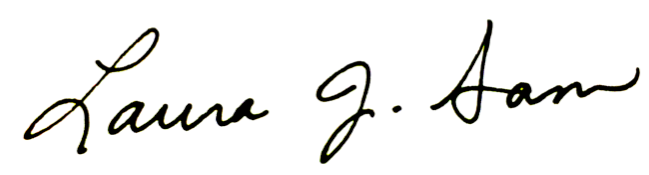 Laura J. Sam